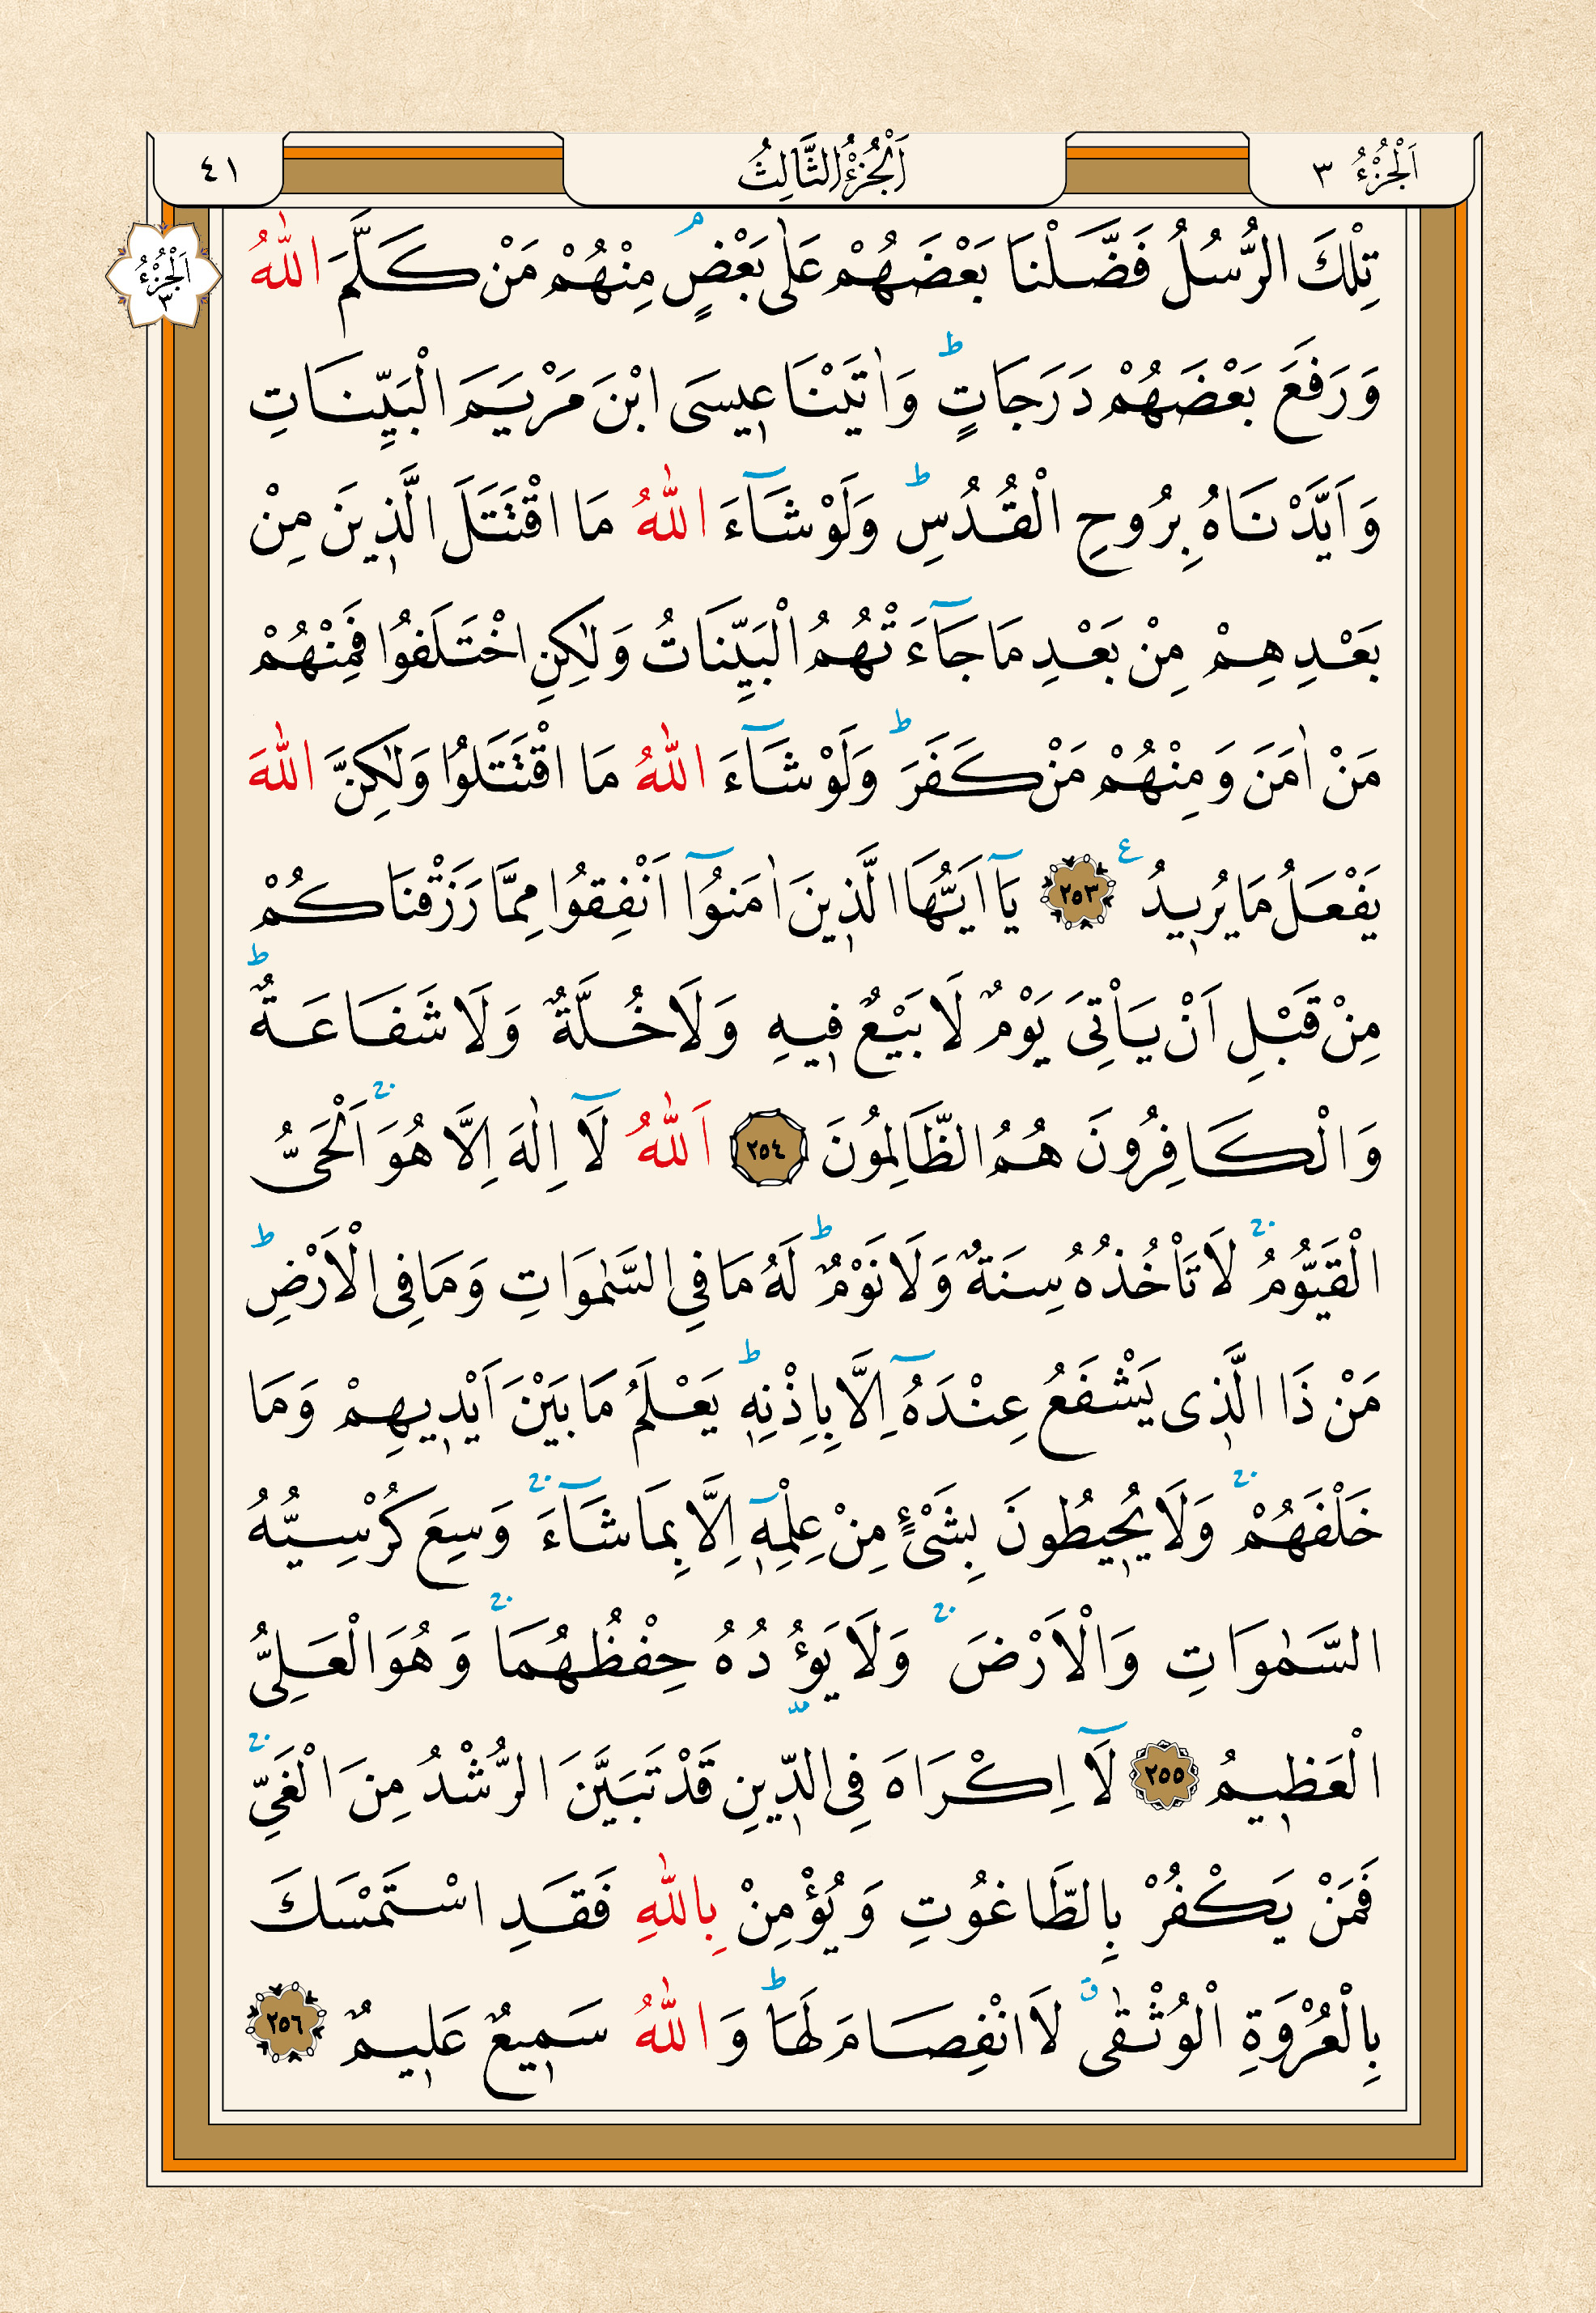 اَلْجُزْءُ ٣
اَلْجُزْءُ الثَّالِثُ
٤١
اَلْجُزْءُ
٣
تِلْكَ الرُّسُلُ فَضَّلْنَا بَعْضَهُمْ عَلٰى بَعْضٍۢ مِنْهُمْ مَنْ كَلَّمَ اللّٰهُ
وَرَفَعَ بَعْضَهُمْ دَرَجَاتٍ ؕ وَاٰتَيْنَا ع۪يسَى ابْنَ مَرْيَمَ الْبَيِّنَاتِ
وَاَيَّدْنَاهُ بِرُوحِ الْقُدُسِ ؕ وَلَوْ شَٓاءَ اللّٰهُ مَا اقْتَتَلَ الَّذ۪ينَ مِنْ
بَعْدِهِمْ مِنْ بَعْدِ مَا جَٓاءَتْهُمُ الْبَيِّنَاتُ وَلٰكِنِ اخْتَلَفُوا فَمِنْهُمْ
مَنْ اٰمَنَ وَمِنْهُمْ مَنْ كَفَرَ ؕ وَلَوْ شَٓاءَ اللّٰهُ مَا اقْتَتَلُوا وَلٰكِنَّ اللّٰهَ
يَفْعَلُ مَا يُر۪يدُ ع ٢٥٣ يَٓا اَيُّهَا الَّذ۪ينَ اٰمَنُٓوا اَنْفِقُوا مِمَّا رَزَقْنَاكُمْ
مِنْ قَبْلِ اَنْ يَأْتِيَ يَوْمٌ لَا بَيْعٌ ف۪يهِ وَلَا خُلَّةٌ وَلَا شَفَاعَةٌ ؕ
وَالْكَافِرُونَ هُمُ الظَّالِمُونَ ٢٥٤ اَللّٰهُ لَٓا اِلٰهَ اِلَّا هُوَۚ اَلْحَيُّ
الْقَيُّومُۚ لَا تَأْخُذُهُ سِنَةٌ وَلَا نَوْمٌ ؕ لَهُ مَا فِي السَّمٰوَاتِ وَمَا فِي الْاَرْضِ ؕ
مَنْ ذَا الَّذ۪ي يَشْفَعُ عِنْدَهُٓ اِلَّا بِاِذْنِه۪ ؕ يَعْلَمُ مَا بَيْنَ اَيْد۪يهِمْ وَمَا
خَلْفَهُمْۚ وَلَا يُح۪يطُونَ بِشَيْءٍ مِنْ عِلْمِه۪ٓ اِلَّا بِمَا شَٓاءَۚ وَسِعَ كُرْسِيُّهُ
السَّمٰوَاتِ وَالْاَرْضَۚ وَلَا يَؤُ۫دُهُ حِفْظُهُمَاۚ وَهُوَ الْعَلِيُّ
الْعَظ۪يمُ ٢٥٥ لَٓا اِكْرَاهَ فِي الدّ۪ينِ قَدْ تَبَيَّنَ الرُّشْدُ مِنَ الْغَيِّۚ
فَمَنْ يَكْفُرْ بِالطَّاغُوتِ وَيُؤْمِنْ بِاللّٰهِ فَقَدِ اسْتَمْسَكَ
بِالْعُرْوَةِ الْوُثْقٰىۗ لَا انْفِصَامَ لَهَا ؕ وَاللّٰهُ سَم۪يعٌ عَل۪يمٌ ٢٥٦